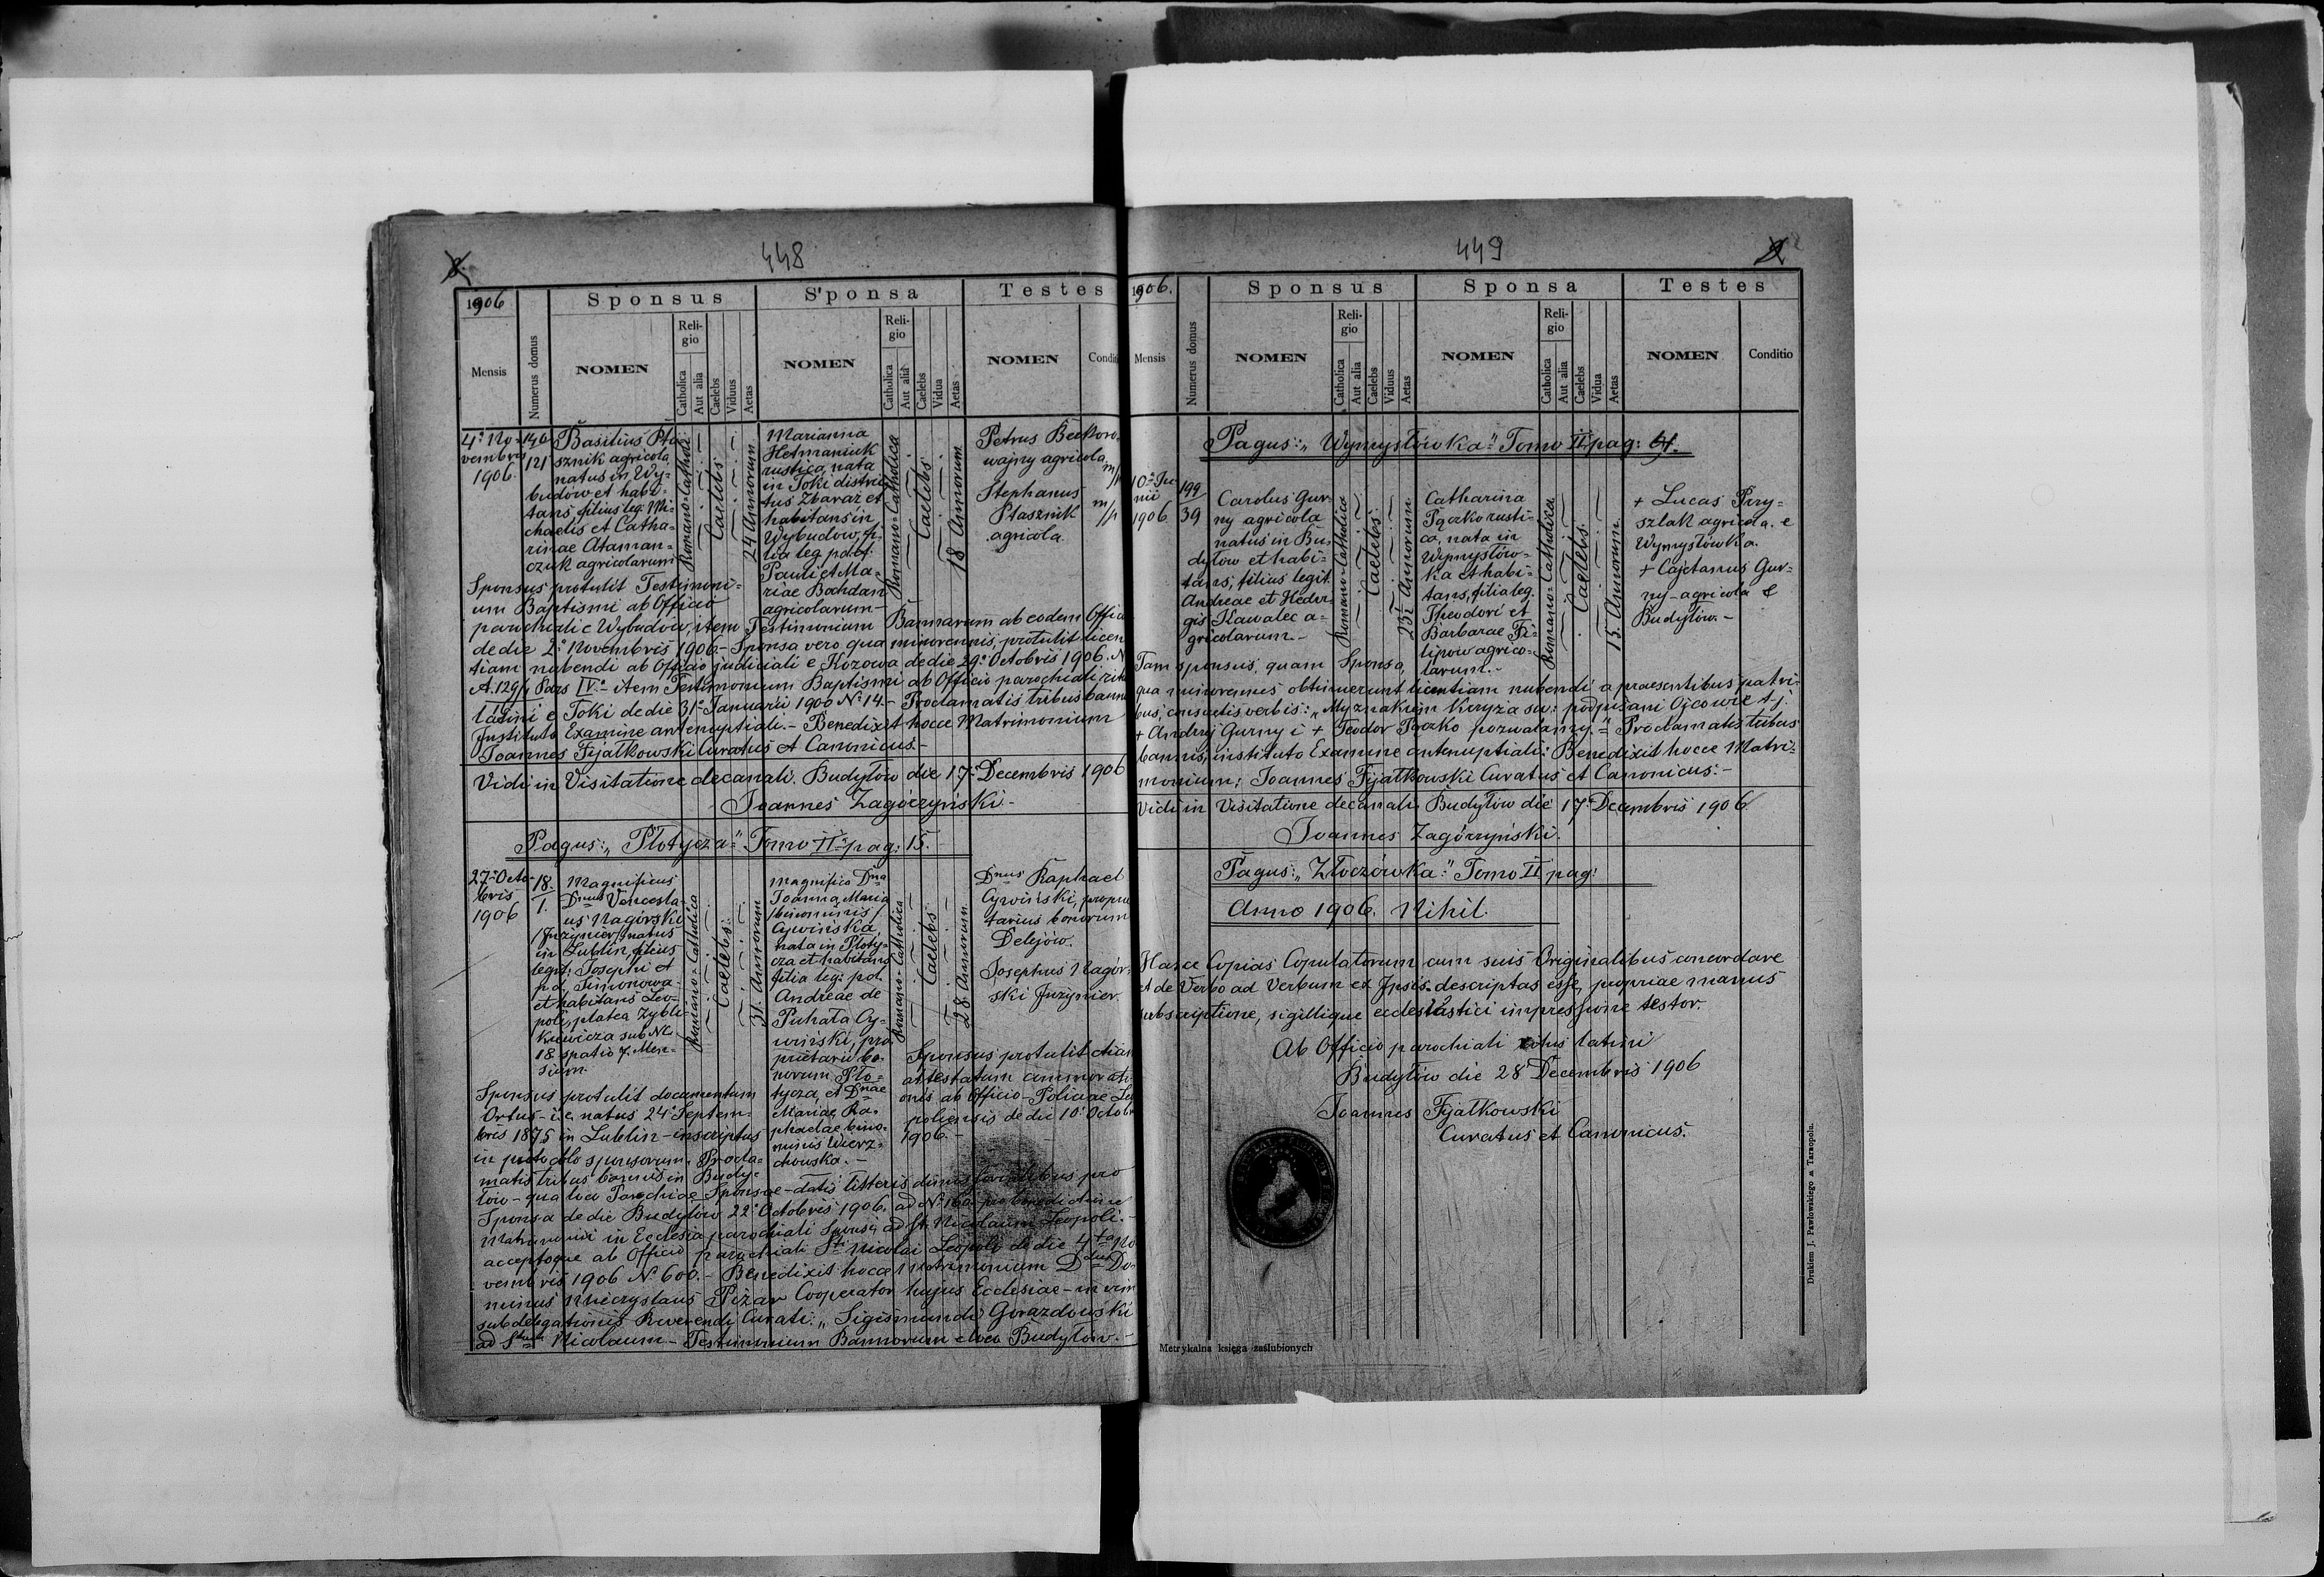 448
1906
Sponsus
Sponsa
Testes
Mensis
Numerus domus
NOMEN
Religio
Catholica
Aut alia
Caelebs
Viduus
Aetas
NOMEN
Religio
Catholica
Aut alia
Caelebs
Vidua
Aetas
NOMEN
4ª No-
vembris
1906.
140
121
Basilius Pta-
sznik agricola
natus in Wy-
budów et habi-
tans, filius leg: Mi-
chaelis et Catha-
rinae Ataman-
czuk agricolarum
Romano-Catholica
Caelebs
24 Annorum
Marianna
Hetmaniuk
rustica, nata
in Toki distric-
tus Zbaraż et
habitans in
Wybudów, fi-
lia leg.
Pauli et Ma-
riae Bochdan
agricolarum-
Romano-Catholica
Caelebs
18 Annorum
Petrus
wajny agricola
Stephanus
Ptasznik
agricola.
Sponsus protulit Testimoni-
um Baptismi ab Officio
parochiali e Wybudów, item Testimonium Bannorum ab eodem Offici
de die 2ª Novembris 1906.- Sponsa vero qua minorennis, protulit licen
tiam nubendi ab Officio judiciali e Kozowa de die 29ª Octobris 1906. N
Pars IVª- item Testimonium Baptismi ab Officio parochiali ritu
latini e Toki de die 31ª Januarii 1900 Nº 14.- Proclamatis tribus bannis
Instituto Examine antenuptiali.- Benedixit hocce Matrimonium
Joannes Fijałkowski Curatus et Canonicus.-
Vidi in Visitatione decanali. Budyłów die 17ª Decembris 1906
Joannes Zagórzyński-
Pagus: „Płotycza" Tomo IIª pag: 15.
27ª Octo-
bris
1906
18.
1.
Magnificus
Dnus Vencesla-
us Nagórski
/Inżynier/ natus
in Lublin, filius
legit: Josephi et
Simonowa
et habitans Leo-
poli, platea Zybli-
kiewicza sub Nº
18. spatio 7. Men-
sium.
Romano-Catholica
Caelebs
31. Annorum
Magnifica Dna
Joanna, Maria
/binominis/
Cywińska,
nata in Płoty-
cza et habitans
filia leg:
Andreae de
Puhała Cy-
wiński, pro-
prietarii bo-
norum Pło-
tycza, et Dnae
Mariae Ra-
phaelae bino-
minis Wierz-
chowska.-
Romano-Catholica
Caelebs
28 Annorum
Dnus Raphael
Cywiński, proprie
tarius bonorum
Delejów.
Josephus Nagór-
ski Inżynier.
Sponsus protulit etiam
attestatum commorati-
onis ab Officio Policiae Leo
poliensis de die 10ª Octobr
1906.-
Sponsus protulit documentum
Ortus- i.e. natus 24ª Septem-
bris 1875 in Lublin- inscriptus
in protocolo sponsorum. Procla-
matis tribus bannis in Budy-
łów- qua loci Parochiae Sponsae- datis litteris dimissorialibus pro
Sponsa de die Budyłów 22ª Octobris 1906. ad Nº 160. pro benedictione
Matrimonii in Ecclesia parochiali Sponsi ad St. Nicolaum Leopoli.-
acceptoque ab Officio parochiali Sti Nicolai Leopoli de die 4ta No
vembris 1906 Nº 600.- Benedixit hocce Matrimonium Dnus Do-
minus Mieczyslaus Piżar Cooperator hujus Ecclesiae- in vim
subdelegationis Reverendi Curati: „Sigismundi Gorazdowski
ad Stum Nicolaum- Testimonium Bannorum e loco Budyłów.-
449
1906.
Sponsus
Sponsa
Testes
Mensis
Numerus domus
NOMEN
Religio
Catholica
Aut alia
Caelebs
Viduus
Aetas
NOMEN
Religio
Catholica
Aut alia
Caelebs
Vidua
Aetas
NOMEN
Conditio
Pagus: „Wymysłówka" Tomo II pag:
10ª Ju
nii
1906
199
39
Carolus Gur-
ny agricola
natus in Bu-
dyłów et habi-
tans; filius legit.
Andreae et Hedvi-
gis Kawalec a-
gricolarum.-
Romano-Catholica
Caelebs
23½ Annorum
Catharina
Paczko rusti-
ca, nata in
Wymysłów-
ka et habi-
tans, filia leg.
Theodori et
Barbarae Fi-
lipów agrico-
larum.-
Romano-Catholica
Caelebs
15. Annorum
+ Lucas Przy-
szlak agricola. e
Wymysłówka.
+ Cajetanus Gur-
ny- agricola e
Budyłów.-
Tam sponsus, quam Sponsa,
qua minorennes obtinuerunt licentiam nubendi a praesentibus patri-
bus, consuetis verbis: „My znakiem Krzyża św: podpisani Ojcowie t.j.
+ Andrzej Gurny i + Teodor Paczko pozwalamy."- Proclamatis tribus
bannis, instituto Examine antenuptiali: Benedixit hocce Matri-
monium: Joannes Fijałkowski Curatus et Canonicus.-
Vidi in Visitatione decanali Budyłów die 17ª Decembris 1906
Joannes Zagórzyński.
Pagus: „Złoczówka" Tomo II pag:
Anno 1906. Nihil.
Hasce Copias Copulatorum cum suis Originalibus concordare
et de Verbo ad Verbum ex Ipsis descriptas esse, propriae manus
subscriptione, sigillique ecclesiastici impressione testor.
Ab Officio parochiali ritus latini
Budyłów die 28 Decembris 1906
Joannes Fijałkowski
Curatus et Canonicus.
Metrykalna księga zaślubionych
Drukiem J. Pawłowskiego w Tarnopolu.